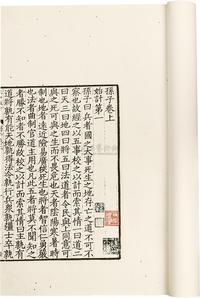 孫子卷上
始計第一
孫子曰兵者國之大事死生之地存亡之道不可不
察也故經之以五事校之以計而索其情一曰道二
曰天三曰地四曰將五曰法道者令民與上同意可
與之死可與之生而不畏危也天者陰陽寒暑時
制也地者遠近險易廣狹死生也將者智信仁勇嚴
也法者曲制官道主用也凡此五者將莫不聞知之
者勝不知者不勝故校之以計而索其情曰主孰有
道將孰有能天地孰得法令孰行兵衆孰強士卒孰